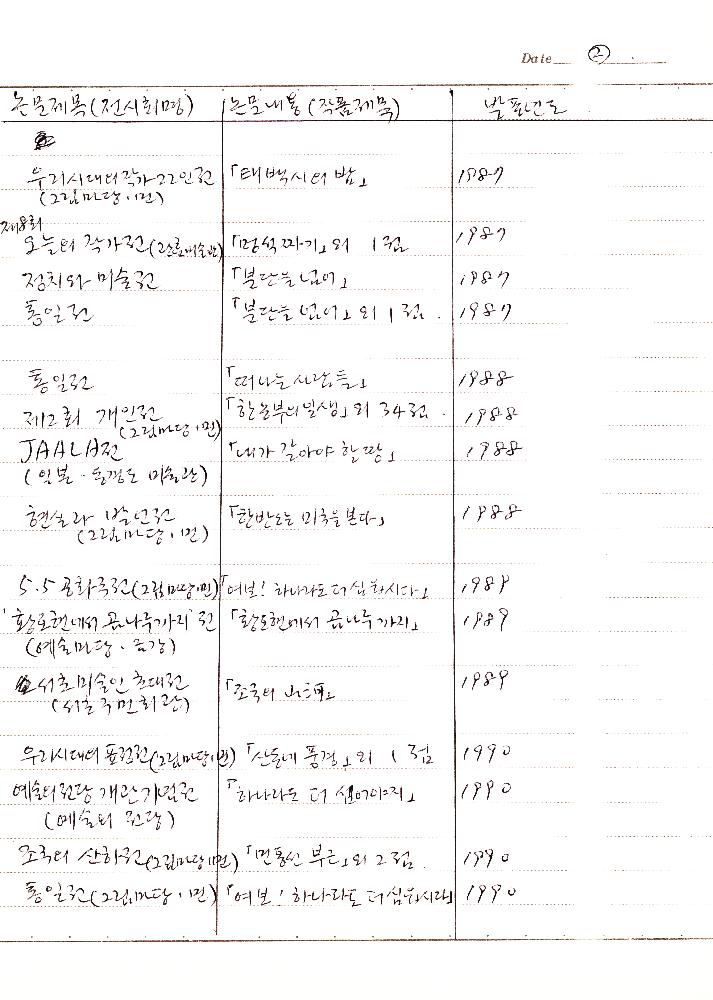 Date ②
논문제목(전시회명) 논문내용(작품제목) 발표년도
우리시대의 작가22인전 「태백시의 밤」 1987
(그림마당·민)
제8회
오늘의 작가전(그림마당) 「멍석짜기」외 1점 1987
정치와 미술전 「분단을 넘어」 1987
통일전 「분단을 넘어」외 1점. 1987
통일전 「떠나는 사람들」 1988
제2회 개인전 「한농부의일생」외 34점. 1988
(그림마당·민)
JAALA전 「내가 갈아야 할 땅」 1988
(일본·동경도 미술관)
현실과 발언전 「한반도는 미국을 본다」 1988
(그림마당·민)
5.5 공화국전(그림마당·민) 「여보! 하나라도 더 심읍시다」 1989
'황토현에서 곰나루까지' 전 「황토현에서 곰나루까지」 1989
(예술마당·금강)
서초미술인초대전 「조국의 」 1989
(서초구민회관)
우리시대의 표정전(그림마당·민) 「산동네 풍경」외 1점 1990
예술의전당 개관기념전 「하나라도 더 심어야지」 1990
(예술의 전당)
조국의 산하전(그림마당·민) 「민통선 부근」외 2점. 1990
통일전(그림마당·민) 「여보! 하나라도 더심읍시다」 1990